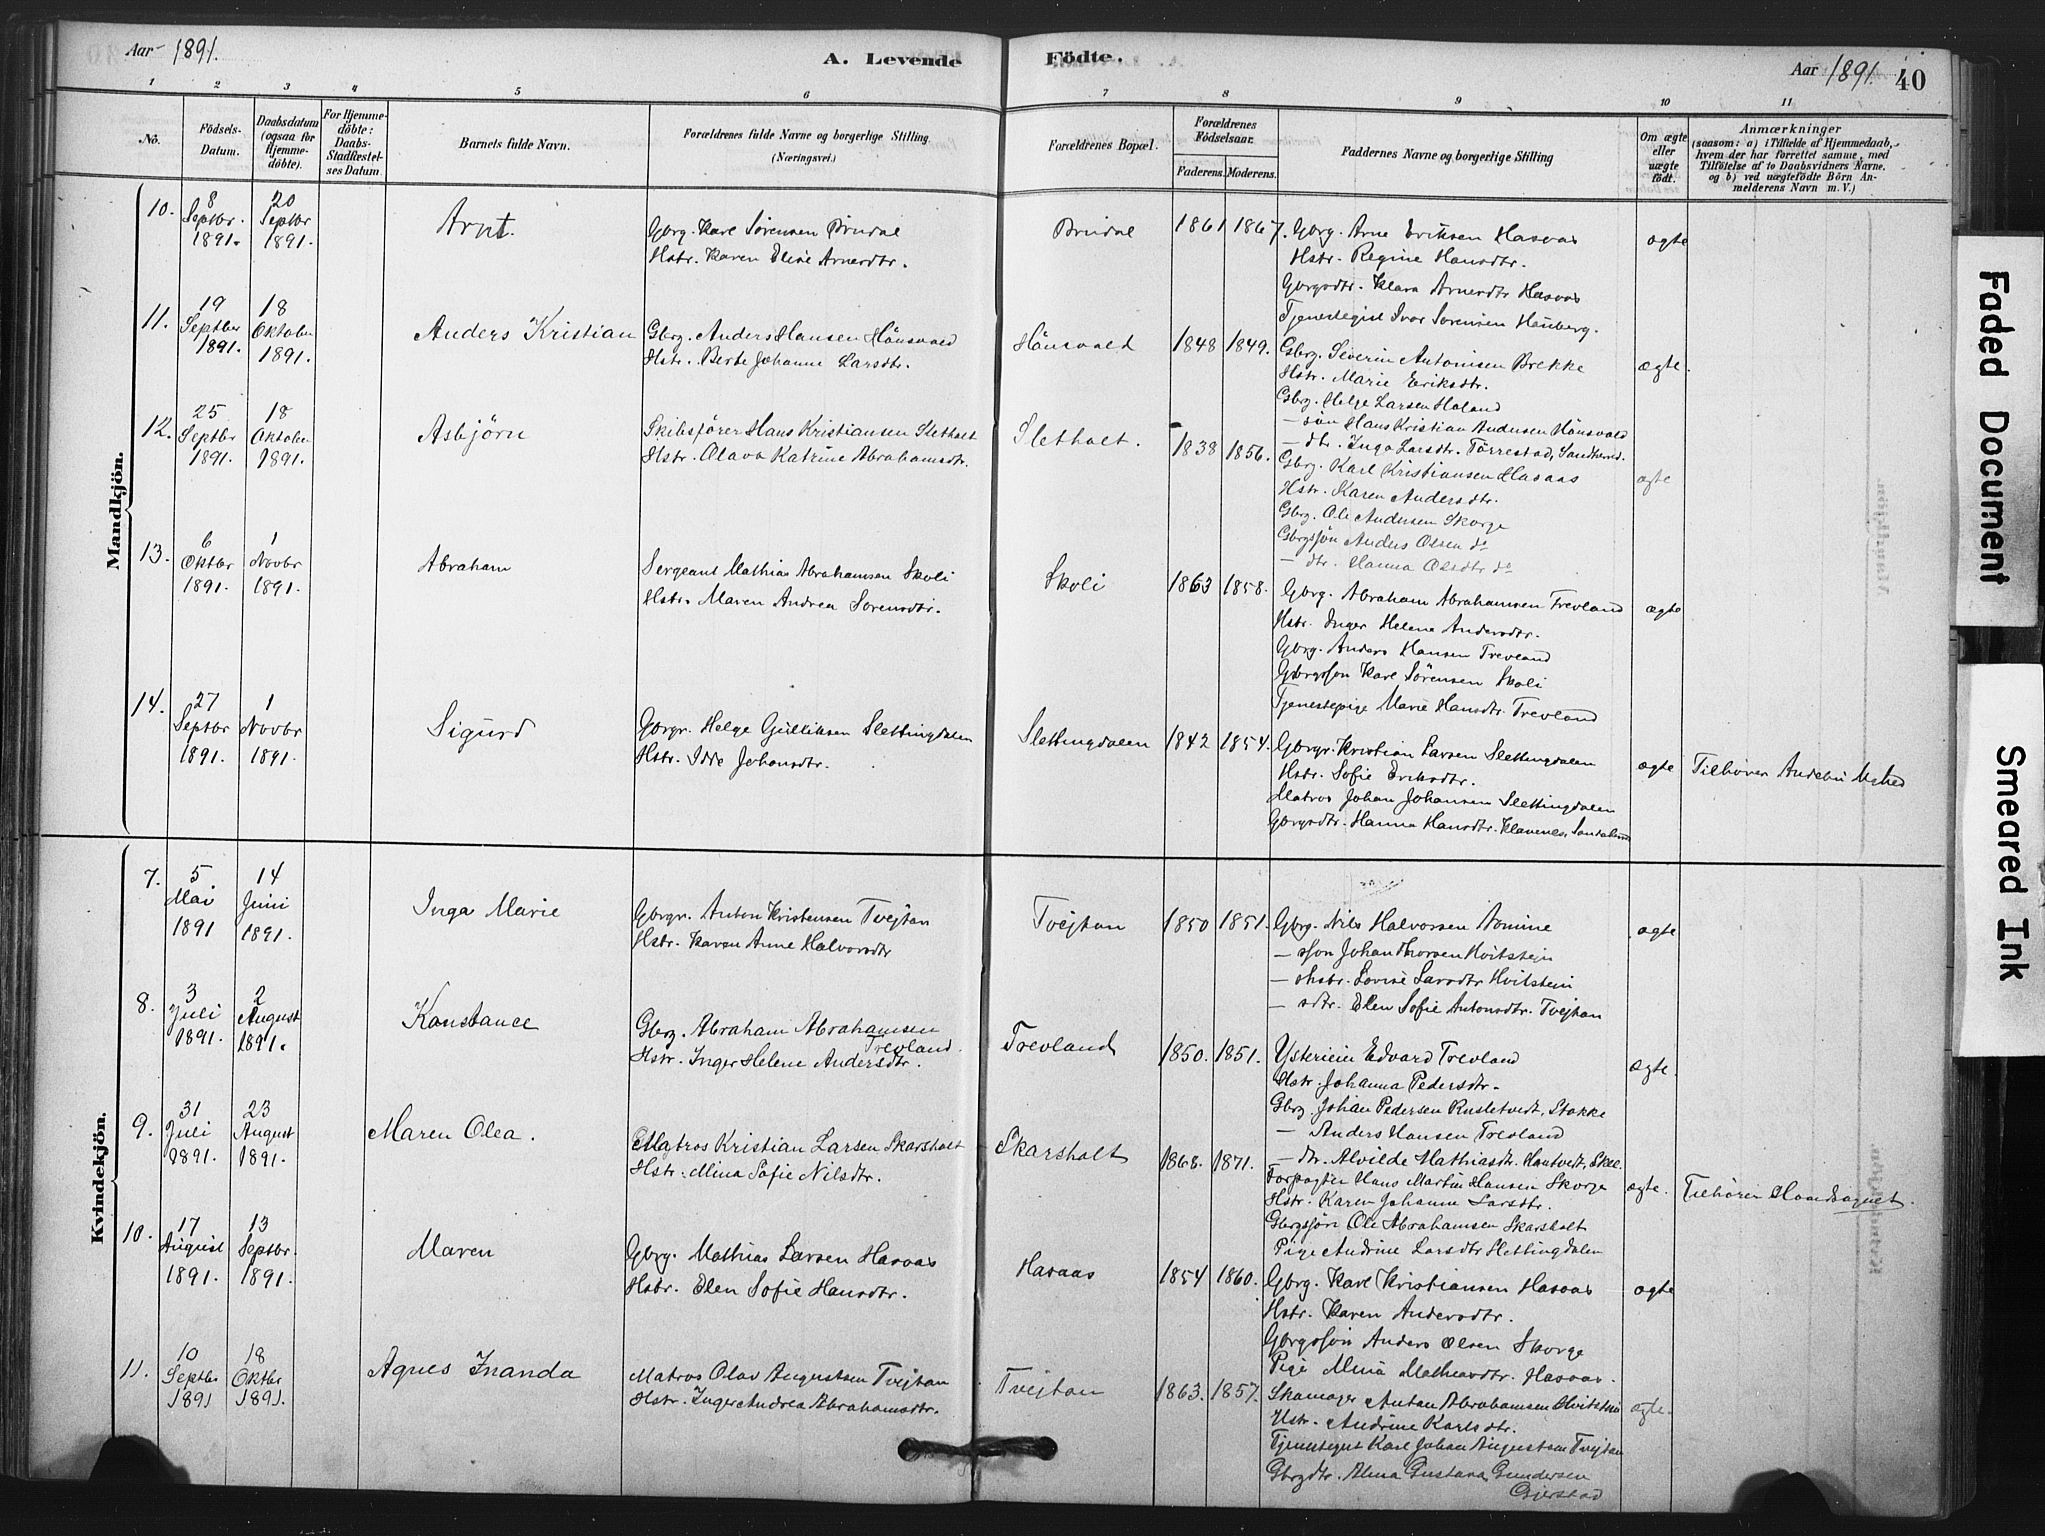 Aar 1891.
A. Levende Födte.
Aar 1891.
40
1 2 3 4 5 6 7 8 9 10 11
No.
Födsels-Datum.
Daabsdatum (ogsaa for Hjemme-döbte).
For Hjemme-döbte: Daabs-Stadfæstel-ses Datum.
Barnets fulde Navn.
Forældrenes fulde Navne og borgerlige Stilling (Næringsvei.)
Forældrenes Bopæl.
Forældrenes Födselsaar.
Faderens. Moderens.
Faddernes Navne og borgerlige Stilling
Om ægte eller uægte födt.
Anmærkninger
(saasom: a) i Tilfælde af Hjemmedaab,
hvem der har forrettet samme, med
Tilföielse af to Daabsvidners Navne.
og b) ved uægtefödte Börn An-
melderens Navn m. V.)
Mandkjön.
10.
8 Septbr. 1891.
20 Septbr 1891.
Arnt.
Gbrg. Karl Sørensen Brudal
Hstr. Karen Elise Arnerdtr.
Brudal
1861 1867.
Gbrg. Arne Eriksen Hasaas
Hstr. Regine Hansdtr.
Gbrgsdtr. Klara Arnerdtr Hasaas
Tjenestegut Ivar Sorensen Hauberg.
ægte
11.
19 Septbr 1891.
18 Oktober 1891.
Anders Kristian
Gbrg. Anders Hansen Hönsvald
Hstr. Berte Johanne Larsdtr.
Hönsvald
1848 1849.
Gbrg. Severin Antonisen Brekke
Hstr. Marie Eriksdtr.
Gbrg. Helge Larsen Holand
— søn Hans Kristian Andersen Hönsvald
— dtr. Inga Larsdtr. Törrestad, Sandherred.
ægte.
12.
25 Septbr 1891.
18 Oktober 1891.
Asbjörn
Skibsförer Hans Kristiansen Sletholt
Hstr. Olava Katrine Abrahamsdtr.
Sletholt.
1838 1856.
Gbrg. Karl Kristiansen Hasaas
Hstr. Karen Andersdtr.
Gbrg. Ole Andersen Skorge
Gbrgsjön Anders Olsen do
— dtr. Hanna Olsdtr do
ægte
13.
6 Oktbr 1891.
1 Novbr 1891.
Abraham
Sergeant Mathias Abrahamsen Skoli
Hstr. Maren Andrea Sorensdtr.
Skoli
1863 1858.
Gbrg. Abraham Abrahamsen Trevland
Hstr. Inger Helene Andersdtr.
Gbrg. Anders Hansen Trevland
Gbrgssøn Karl Sörensen Skoli
Tjenestepige Marie Hansdtr. Trevland
ægte
14.
27 Septbr 1891.
1 Novbr 1891.
Sigurd
Gbrgr. Helge Gulliksen Slettingdalen
Hstr. Idde Johansdtr.
Slettingdalen
1842 1854.
Gbrgr. Kristian Larsen Slettingdalen
Hstr. Sofie Eriksdtr.
Matros Johan Johansen Slettingdalen
Gbrgsdtr. Hanna Hansdtr. Klavenes, Sandeherred
ægte
Tilhører Andebu Mghed
Kvindekjön.
7.
5 Mai 1891
14 Juni 1891.
Inga Marie
Gbrgr. Anton Kristensen Tvejtan
Hstr. Karen Anne Halvorsdtr
Tvejtan
1850 1851.
Gbrg. Nils Halvorsen Aomine
— søn Johan Thorsen Hvitstein
— Hstr. Lovise Larsdtr Hvitstein
— sdtr. Elen Sofie Antonsdtr. Tvejtan
ægte
8.
3 Juli 1891.
2 August 1891.
Konstance
Gbrg. Abraham Abrahamsen Trevland.
Hstr. Inger Helene Andersdtr.
Trevland
1850. 1851.
Ysterieier Edvard Trevland
Hstr. Johanna Pedersdtr.
Gbrg. Johan Pedersen Rusletvedt, Stokke
— Anders Hansen Trevland
— dtr. Alvilde Mathiasdtr. Hantvedt, Skee.
ægte.
9.
31 Juli 1891.
23 August 1891.
Maren Olea.
Matros Kristian Larsen Skarsholt
Hstr. Mina Sofie Nilsdtr.
Skarsholt
1868. 1871.
Forpagter Hans Martin Hansen Skorge
Hstr. Karen Johanne Larsdtr.
Gbrgsjön Ole Abrahamsen Skarsholt
Pige Andrine Larsdtr Slettingdalen
ægte.
Tilhörer Hovedsognet.
10.
17 August 1891.
13 Septbr. 1891.
Maren
Gbrg. Mathias Larsen Hasaas
Hstr. Elen Sofie Hansdtr.
Hasaas
1854 1860.
Gbrg. Karl Kristiansen Hasaas
Hstr. Karen Andersdtr.
Gbrgssön Anders Olsen Skorge
Pige Mina Mathiasdtr. Hasaas.
ægte
11.
10 Septbr 1891
18 Oktbr 1891.
Agnes Inanda
Matros Olav Augustsen Tvejtan
Hstr. Inger Andrea Abrahamsdtr.
Tvejtan
1863. 1857.
Skomager Anton Abrahamsen Hvitstein
Hstr. Andrine Karlsdtr.
Tjenestegut Karl Johan Augustsen Tvejtan
Gbrgdtr. Alma Gustava Gundersen
Gjerstad
ægte.
Faded Document
Smeared Ink